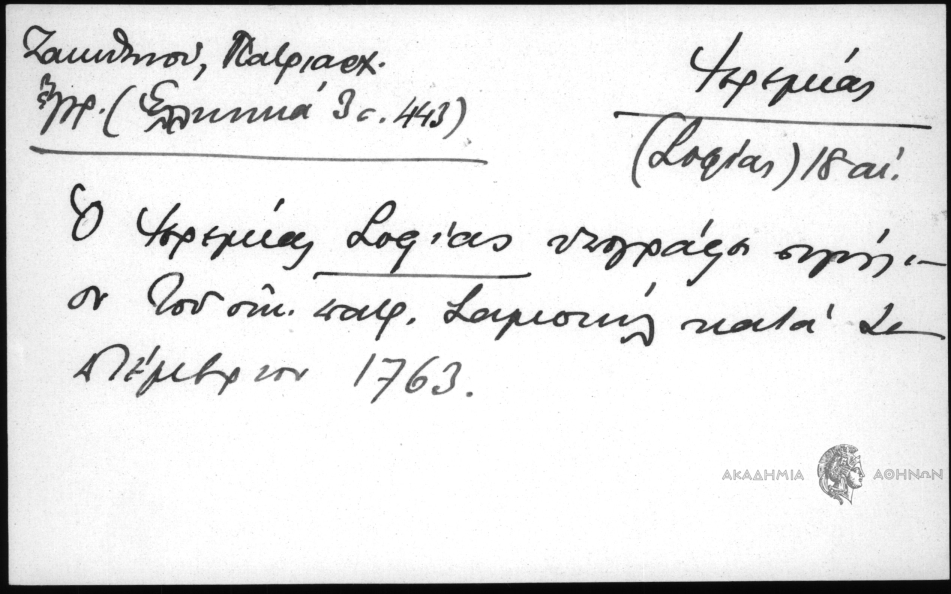 Ζακυθηνού, Πατριαρχ.
ἔγγρ. (Ἑλληνικά 3 σ. 443)
Ἱερεμίας
(Σοφίας) 18 αἰ.
Ὁ Ἱερεμίας Σοφίας ὑπογράφει σιγίλι-
ον τοῦ οἰκ. πατρ. Σαμουήλ κατά Σε
πτέμβριον 1763.
ΑΚΑΔΗΜΙΑ ΑΘΗΝΩΝ